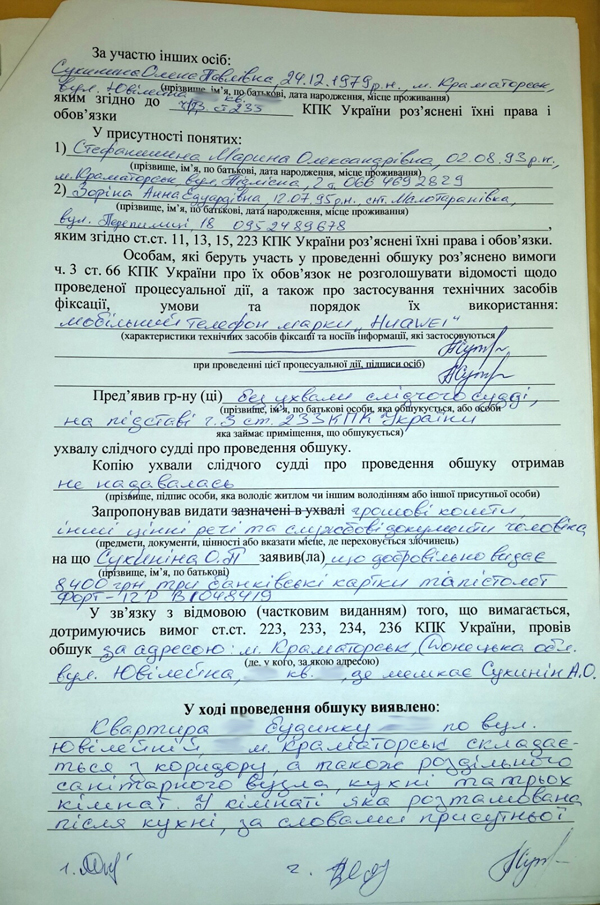 За участю інших осіб:
Сукинина Олена Павлівна, 24.12.1979 р.н., м. Краматорськ,
вул. Ювілейна кв.
(прізвище, ім'я, по батькові, дата народження, місце проживання)
яким згідно до ч.3 ст 233 КПК України роз'яснені їхні права і
обов'язки
У присутності понятих:
1) Стефанишена Марина Олександрівна, 02.08.93р.н.,
(прізвище, ім'я, по батькові, дата народження, місце проживання)
м.Краматорськ вул. 2а 066 469 2829
2) Зоріна Анна Едуардівна 12.07.95р.н., смт. Малотаранівка,
(прізвище, ім'я, по батькові, дата народження, місце проживання)
вул. 18 0952489678
яким згідно ст.ст. 11, 13, 15, 223 КПК України роз'яснені їхні права і обов'язки.
Особам, які беруть участь у проведенні обшуку роз'яснено вимоги
ч. 3 ст. 66 КПК України про їх обов'язок не розголошувати відомості щодо
проведеної процесуальної дії, а також про застосування технічних засобів
фіксації, умови та порядок їх використання:
мобільний телефон марки „HUAWEI"
(характеристики технічних засобів фіксації та носіїв інформації, які застосовуються
при проведенні цієї процесуальної дії, підписи осіб)
Пред'явив гр-ну (ці) без ухвали слідчого судді,
(прізвище, ім'я, по батькові особи, яка обшукується, або особи
на підставі ч.3 ст. 233 КПК України
яка займає приміщення, що обшукується)
ухвалу слідчого судді про проведення обшуку.
Копію ухвали слідчого судді про проведення обшуку отримав
не надавалась
(прізвище, підпис особи, яка володіє житлом чи іншим володінням або іншої присутньої особи)
Запропонував видати зазначені в ухвалі грошові кошти,
інші цінні речі та службові документи чоловіка
(предмети, документи, цінності або вказати місце, де переховується злочинець)
на що Сукиніна О.П заявив(ла), що добровільно видає
(прізвище, ім'я, по батькові)
8400 грн три банківські картки та пістолет
Форт-12Р В1048419
У зв'язку з відмовою (частковим виданням) того, що вимагається,
дотримуючись вимог ст.ст. 223, 233, 234, 236 КПК України, провів
обшук за адресою: м. Краматорськ, Донецька обл.
(де, у кого, за якою адресою)
вул. Ювілейна, кв. , де мешкає Сукинін А.О.
У ході проведення обшуку виявлено:
Квартира будинку по вул.
Ювілейній, м. Краматорськ складає-
ться з коридору, а також роздільного
санітарного вузла, кухні та трьох
кімнат. У кімнаті яка розташована
після кухні, за словами присутньої
1.
2.